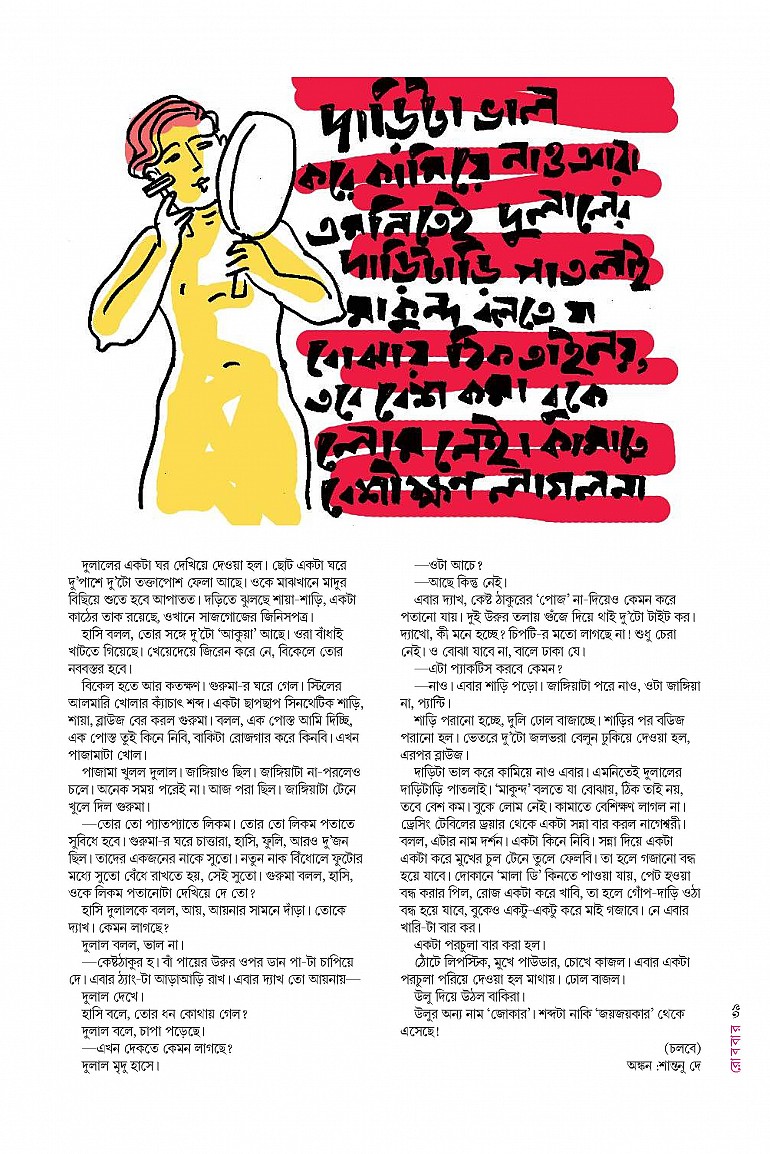 দাড়িটা ভাল
করে কামিয়ে নাও এবার।
এমনিতেই দুলালের
দাড়িটাড়ি পাতলাই
মাকুন্দ বলতে যা
বোঝায় ঠিক তাই নয়,
তবে বেশ কম। বুকে
লোম নেই। কামাতে
বেশীক্ষণ লাগল না
দুলালের একটা ঘর দেখিয়ে দেওয়া হল। ছোট একটা ঘরে
দু'পাশে দু'টো তক্তাপোশ ফেলা আছে। ওকে মাঝখানে মাদুর
বিছিয়ে শুতে হবে আপাতত। দড়িতে ঝুলছে শায়া-শাড়ি, একটা
কাঠের তাক রয়েছে, ওখানে সাজগোজের জিনিসপত্র।
হাসি বলল, তোর সঙ্গে দু'টো 'আকুয়া' আছে। ওরা বাঁধাই
খাটতে গিয়েছে। খেয়েদেয়ে জিরেন করে নে, বিকেলে তোর
নববস্তর হবে।
বিকেল হতে আর কতক্ষণ। গুরুমা-র ঘরে গেল। স্টিলের
আলমারি খোলার ক্যাঁচাৎ শব্দ। একটা ছাপছাপ সিনথেটিক শাড়ি,
শায়া, ব্লাউজ বের করল গুরুমা। বলল, এক পোস্ত আমি দিচ্ছি,
এক পোস্ত তুই কিনে নিবি, বাকিটা রোজগার করে কিনবি। এখন
পাজামাটা খোল।
পাজামা খুলল দুলাল। জাঙ্গিয়াও ছিল। জাঙ্গিয়াটা না-পরলেও
চলে। অনেক সময় পরেই না। আজ পরা ছিল। জাঙ্গিয়াটা টেনে
খুলে দিল গুরুমা।
—তোর তো প্যাতপ্যাতে লিকম। তোর তো লিকম পতাতে
সুবিধে হবে। গুরুমা-র ঘরে চাত্তারা, হাসি, ফুলি, আরও দু'জন
ছিল। তাদের একজনের নাকে সুতো। নতুন নাক বিঁধোলে ফুটোর
মধ্যে সুতো বেঁধে রাখতে হয়, সেই সুতো। গুরুমা বলল, হাসি,
ওকে লিকম পতানোটা দেখিয়ে দে তো?
হাসি দুলালকে বলল, আয়, আয়নার সামনে দাঁড়া। তোকে
দ্যাখ। কেমন লাগছে?
দুলাল বলল, ভাল না।
—কেষ্টঠাকুর হ। বাঁ পায়ের উরুর ওপর ডান পা-টা চাপিয়ে
দে। এবার ঠ্যাং-টা আড়াআড়ি রাখ। এবার দ্যাখ তো আয়নায়—
দুলাল দেখে।
হাসি বলে, তোর ধন কোথায় গেল?
দুলাল বলে, চাপা পড়েছে।
—এখন দেকতে কেমন লাগছে?
দুলাল মৃদু হাসে।
—ওটা আচে?
—আছে কিন্তু নেই।
এবার দ্যাখ, কেষ্ট ঠাকুরের 'পোজ' না-দিয়েও কেমন করে
পতানো যায়। দুই উরুর তলায় গুঁজে দিয়ে থাই দু'টো টাইট কর।
দ্যাখো, কী মনে হচ্ছে? চিপটি-র মতো লাগছে না। শুধু চেরা
নেই। ও বোঝা যাবে না, বালে ঢাকা যে।
—এটা প্যাকটিস করবে কেমন?
—নাও। এবার শাড়ি পড়ো। জাঙ্গিয়াটা পরে নাও, ওটা জাঙ্গিয়া
না, প্যান্টি।
শাড়ি পরানো হচ্ছে, দুলি ঢোল বাজাচ্ছে। শাড়ির পর বডিজ
পরানো হল। ভেতরে দু'টো জলভরা বেলুন ঢুকিয়ে দেওয়া হল,
এরপর ব্লাউজ।
দাড়িটা ভাল করে কামিয়ে নাও এবার। এমনিতেই দুলালের
দাড়িটাড়ি পাতলাই। 'মাকুন্দ' বলতে যা বোঝায়, ঠিক তাই নয়,
তবে বেশ কম। বুকে লোম নেই। কামাতে বেশিক্ষণ লাগল না।
ড্রেসিং টেবিলের ড্রয়ার থেকে একটা সন্না বার করল নাগেশ্বরী।
বলল, এটার নাম দর্শন। একটা কিনে নিবি। সন্না দিয়ে একটা
একটা করে মুখের চুল টেনে তুলে ফেলবি। তা হলে গজানো বন্ধ
হয়ে যাবে। দোকানে 'মালা ডি' কিনতে পাওয়া যায়, পেট হওয়া
বন্ধ করার পিল, রোজ একটা করে খাবি, তা হলে গোঁপ-দাড়ি ওঠা
বন্ধ হয়ে যাবে, বুকেও একটু-একটু করে মাই গজাবে। নে এবার
খারি-টা বার কর।
একটা পরচুলা বার করা হল।
ঠোটে লিপস্টিক, মুখে পাউডার, চোখে কাজল। এবার একটা
পরচুলা পরিয়ে দেওয়া হল মাথায়। ঢোল বাজল।
উলু দিয়ে উঠল বাকিরা।
উলুর অন্য নাম 'জোকার'। শব্দটা নাকি 'জয়জয়কার' থেকে
এসেছে!
(চলবে)
অঙ্কন :শান্তনু দে
রোববার ৩৯